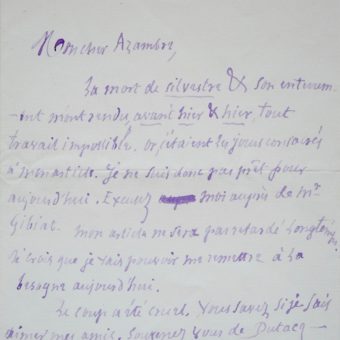 Mon cher Azambre,
La mort de silvestre & son enterrem
-ent m'ont rendu avant hier & hier, tout
travail impossible. or, c'étaient les jours consacrés
à mon article. Je ne suis donc pas prêt pour
aujourd'hui. Excusez moi auprès de Mr
Gibiat. mon article ne sera pas retardé longtemps.
Je crois que je vais pouvoir me remettre à la
besogne aujourd'hui.
Le coup a été cruel. Vous savez si je sais
aimer mes amis. Souvenez vous de Dutacq